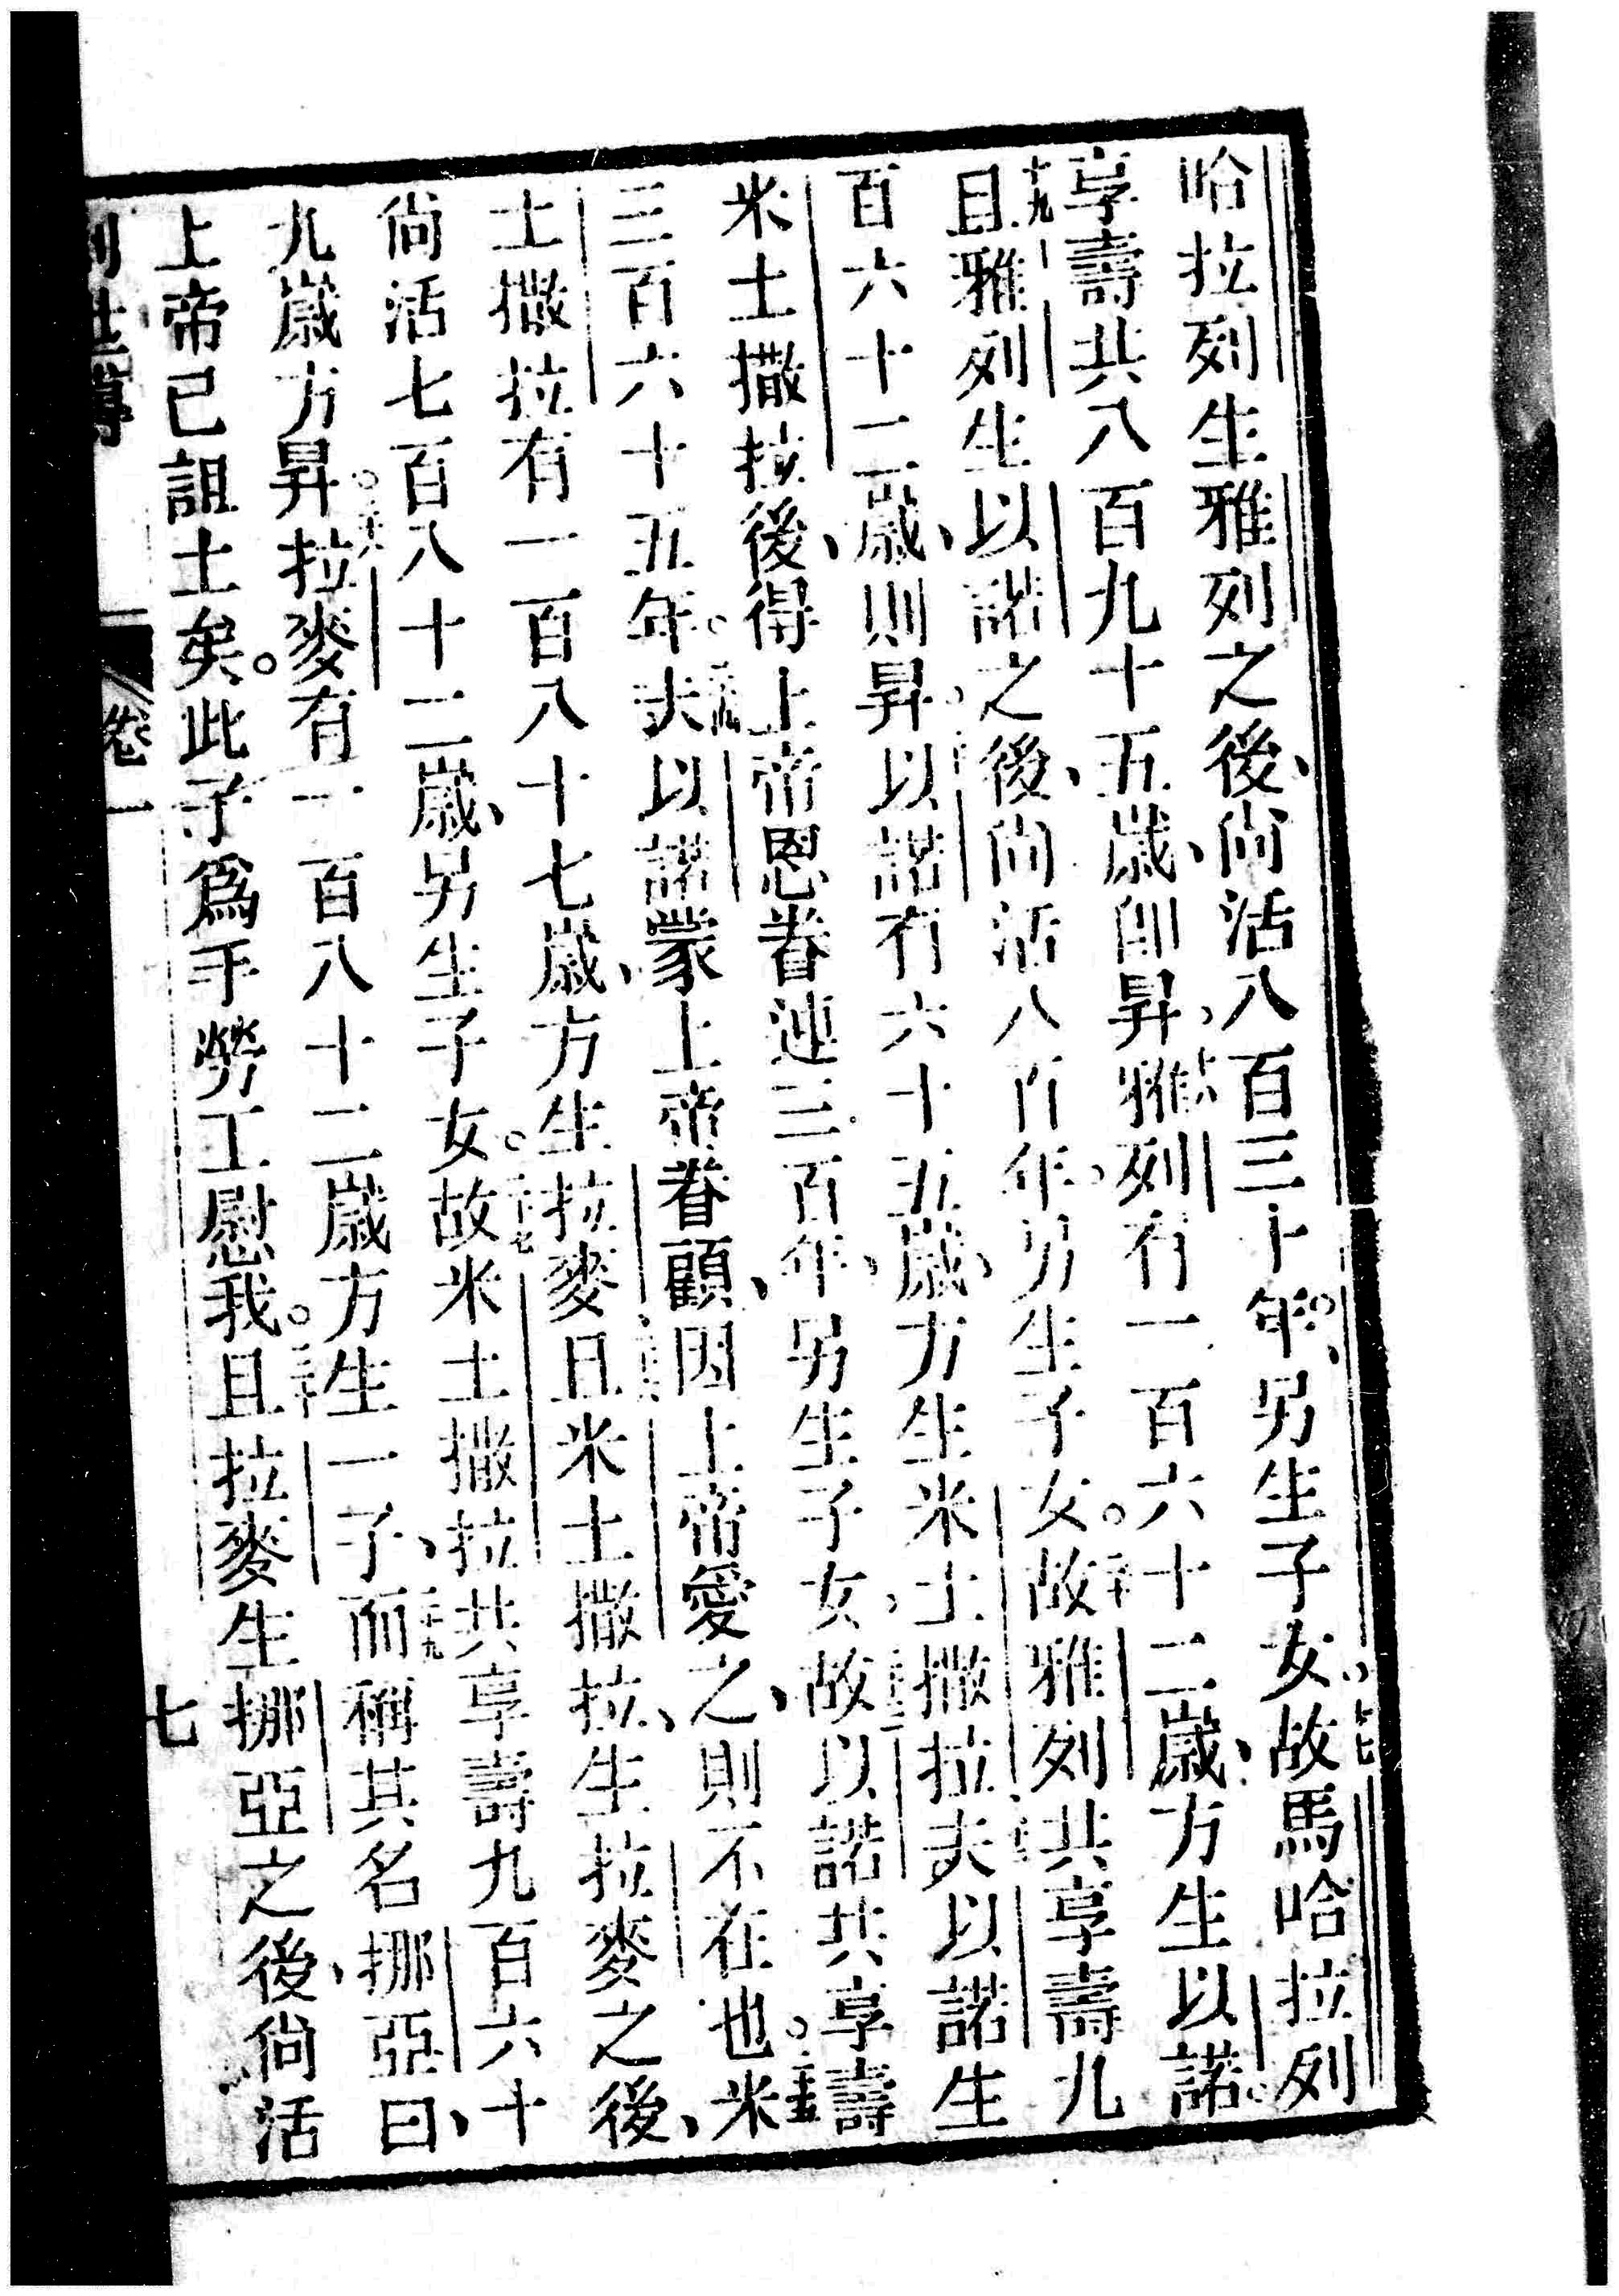 哈拉列生雅列之後、尚活八百三十年、另生子女、十七故馬哈拉列
享壽共八百九十五歲、卽昇、十八雅列有一百六十二歲、方生以諾。
十九且雅列生以諾之後、尚活八百年、另生子女。二十故雅列共享壽九
百六十二歲、則昇。二十一以諾有六十五歲、方生米土撒拉二十二夫以諾生
米土撒拉後、得上帝恩眷連三百年、另生子女、二十三故以諾共享壽
三百六十五年。二十四夫以諾蒙上帝眷顧、因上帝愛之、則不在也。二十五米
土撒拉有一百八十七歲、方生拉麥二十六且米土撒拉、生拉麥之後、
尚活七百八十二歲、另生子女。二十七故米土撒拉共享壽九百六十
九歲方昇。二十八拉麥有一百八十二歲方生一子、二十九而稱其名挪亞曰、
上帝已詛土矣。此子爲手勞工慰我。三十且拉麥生挪亞之後、尚活
創世傳 卷一 七